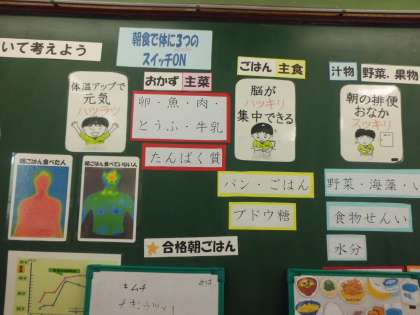 いて考えよう
朝食で体に3つの
スイッチON
おかず 主菜
ごはん 主食
汁物 野菜、果物
体温アップで
元気
ハツラツ
卵・魚・肉・
とうふ・牛乳
たんぱく質
脳が
ハッキリ
集中できる
朝の排便
おなか
スッキリ
パン・ごはん
ブドウ糖
野菜・海藻・
食物せんい
水分
朝ごはん食べた人
朝ごはん食べていない人
合格朝ごはん
キムチ